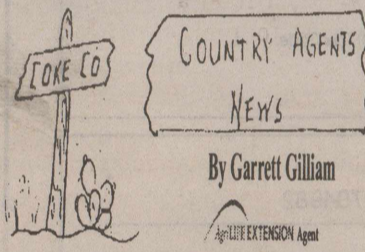 COKE CO
COUNTRY AGENTS
NEWS
By Garrett Gilliam
AgriLIFE EXTENSION Agent